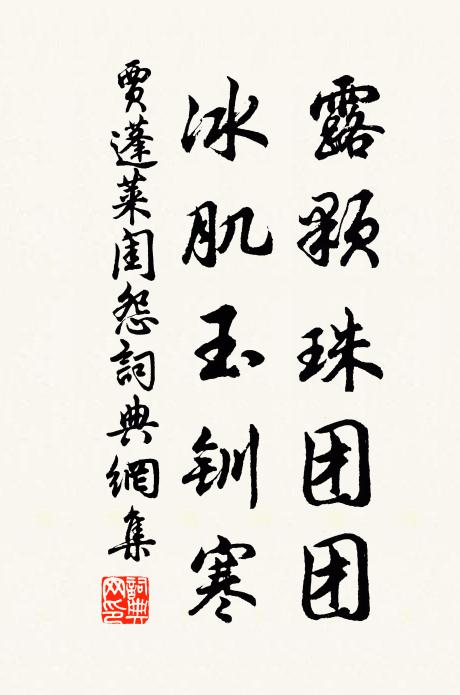 露顆珠团团
冰肌玉钏寒
賈蓬莱閨怨詞典網集
詞典网印